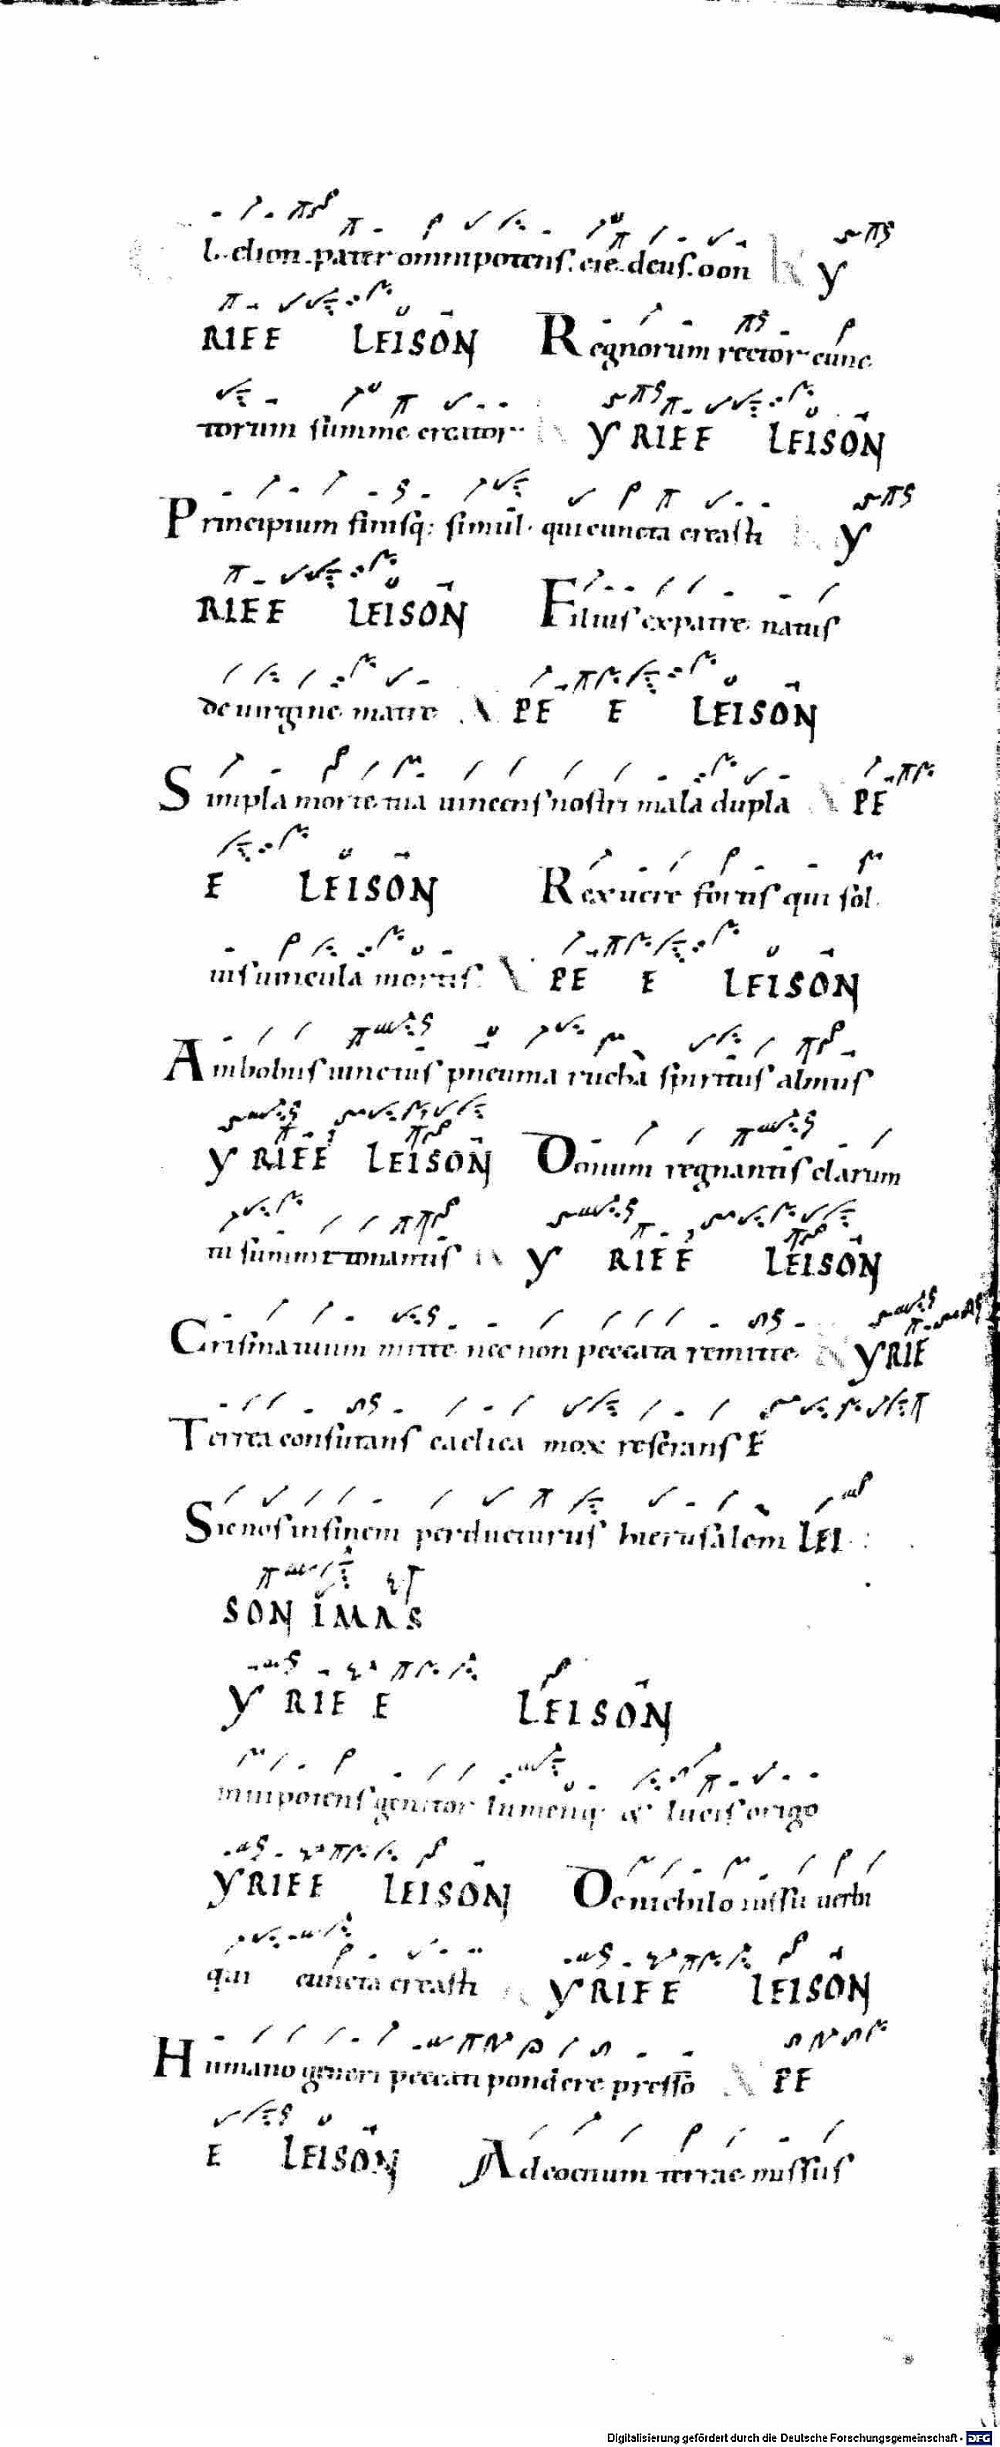 elion. pater omnipotens. eie. deus. oon K y
RIEE LEISON Regnorum rector cunc
torum summe creator K yRIEE LEISON
Principium finisq: simul. qui cuncta creasti K y
RIEE LEISON Filius ex patre. natus
de uirgine. matre X PE E LEISON
Simpla morte tua uincens nostri mala dupla X PE
E LEISON Rex uere fortis qui sol
uis uincula mortis X PE E LEISON
Ambobus iunctus pneuma rucha spiritus almus
yRIEE LEISON Donum regnantis clarum
tu summe tonantis K y RIEE LEISON
Crisma tuum mitte. nec non peccata remitte. K yRIE
Terrea consutans caelica mox reserans E
Sic nos in finem perducturus hierusalem LEI
SON IMAS
y RIE E LEISON
mnipotens genitor lumenq: & lucis origo
yRIEE LEISON De nichilo iussu uerbi
qui cuncta creasti K yRIEE LEISON
Humano generi peccati pondere. presso X PE
E LEISON Ad cocnum terrae. missus